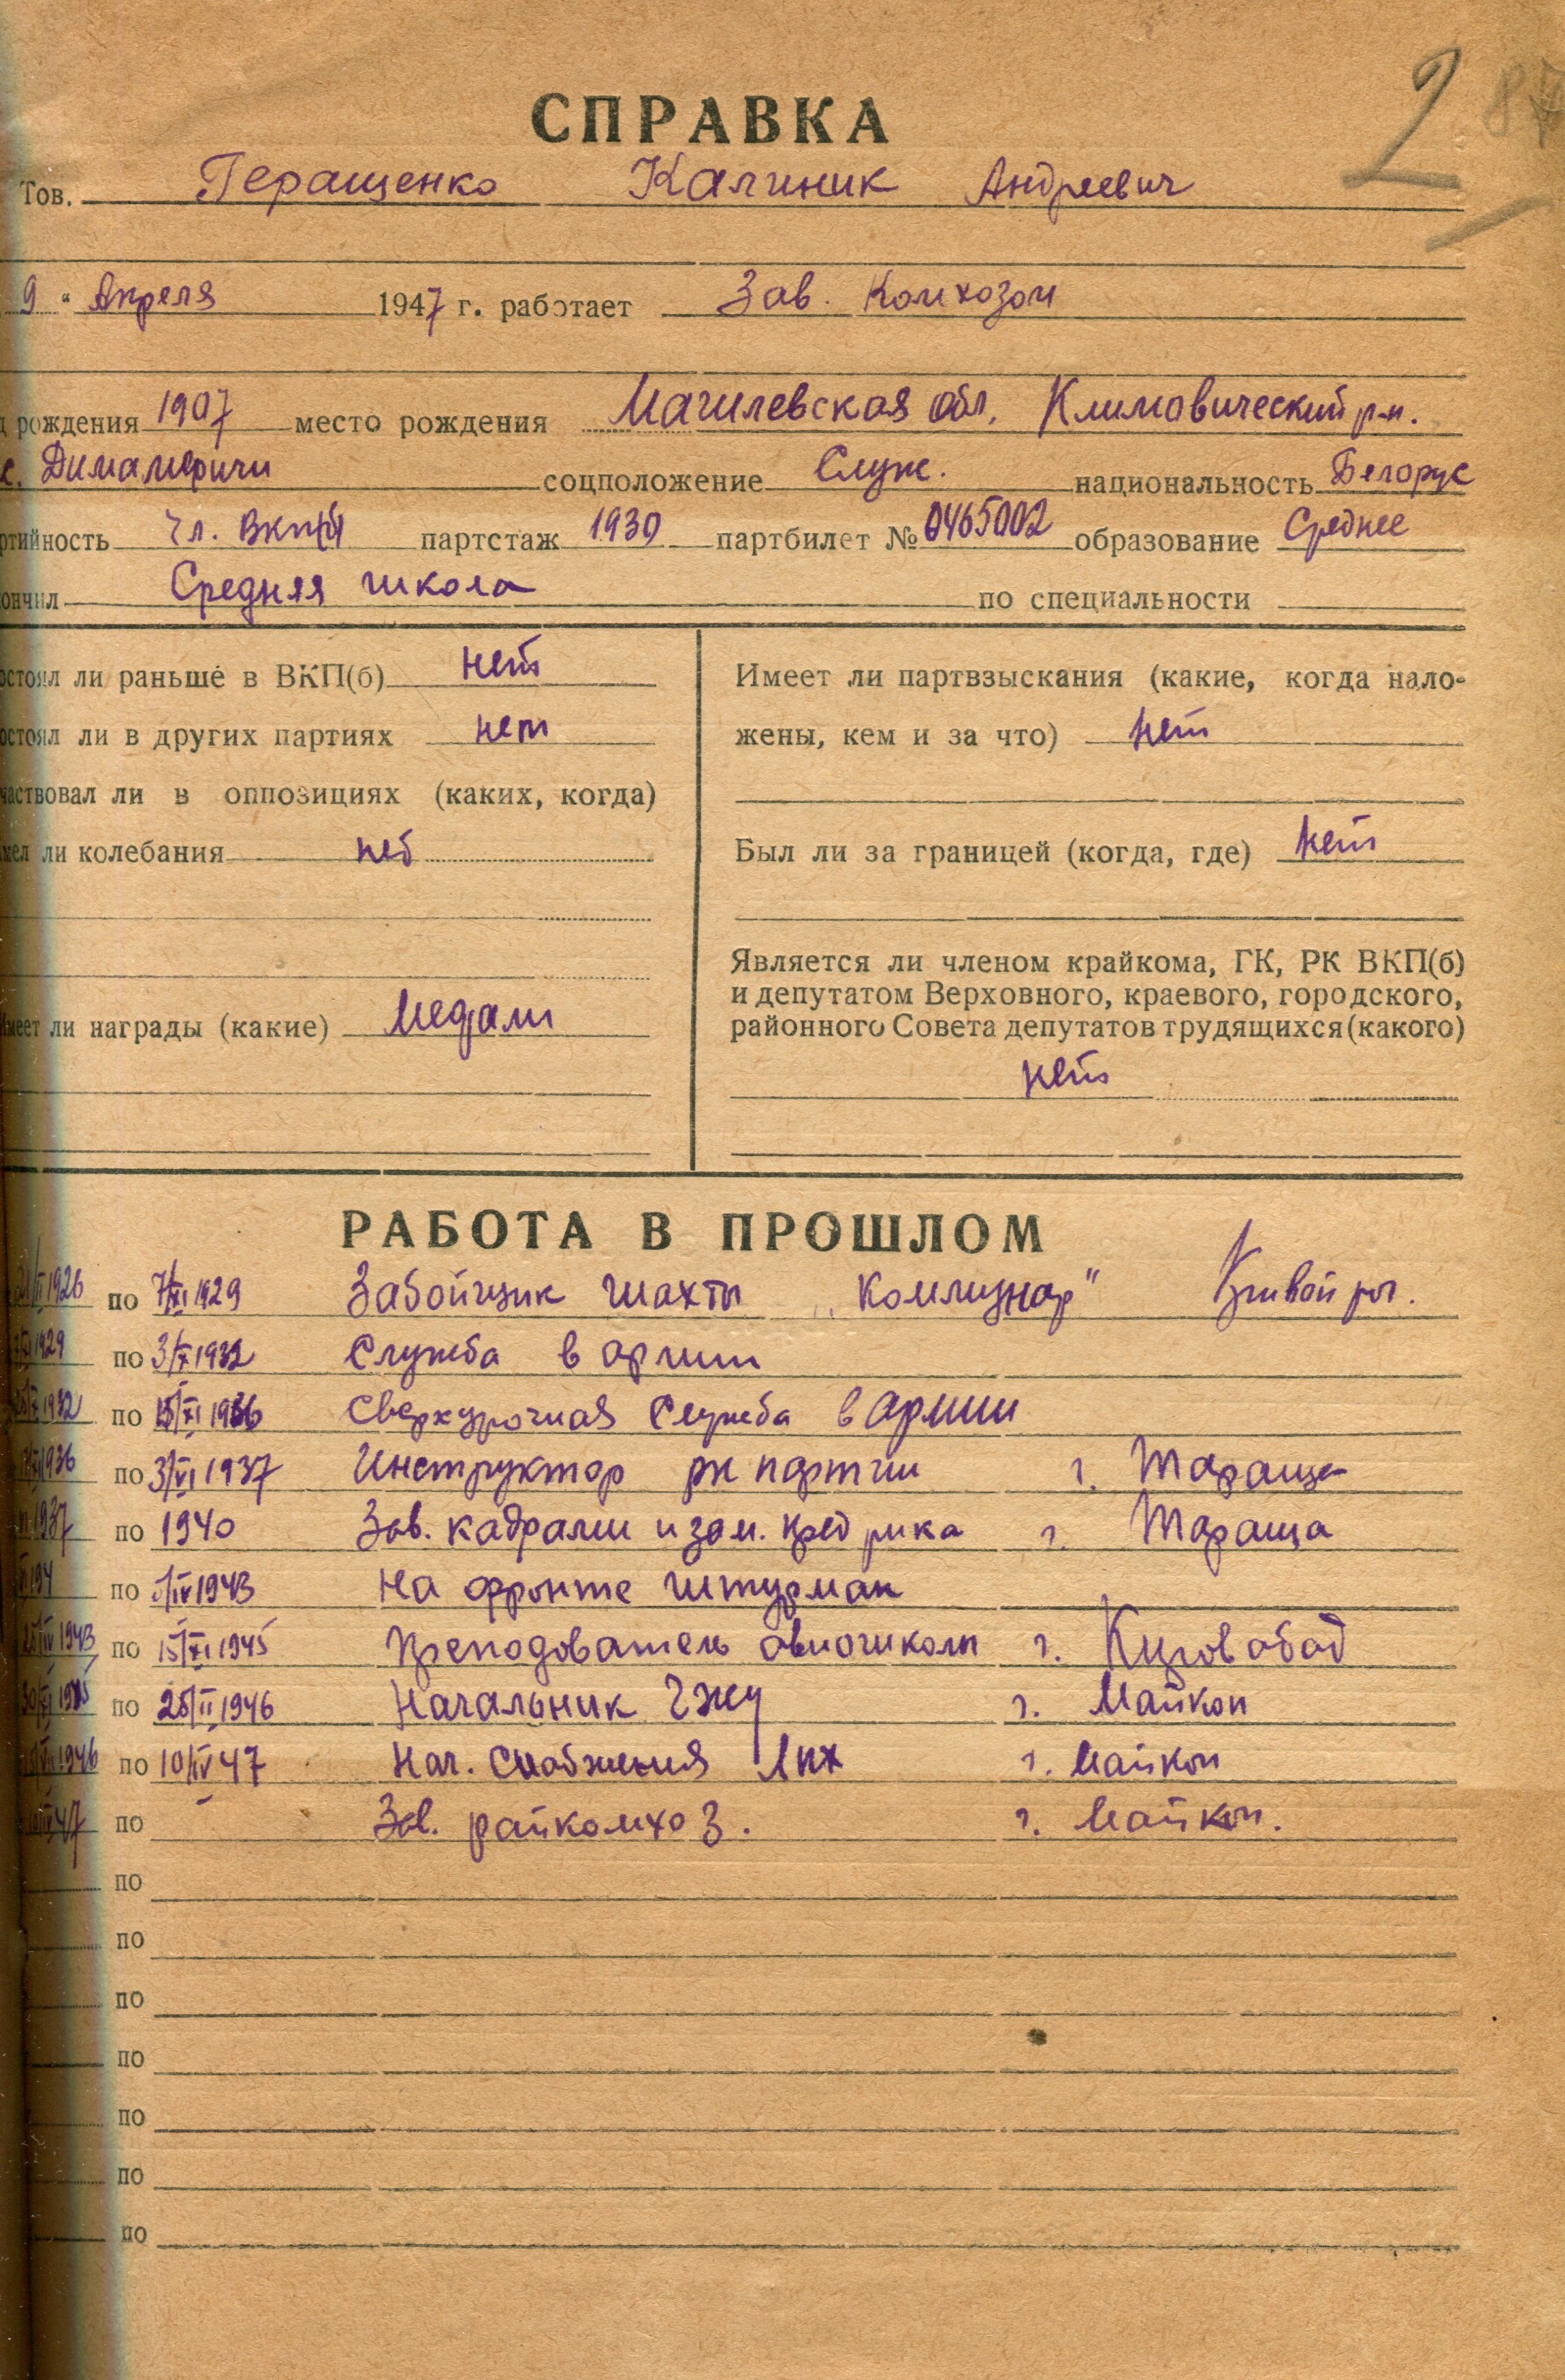 2
СПРАВКА
Тов. Геращенко Калиник Андреевич
9 " Апреля 1947 г. работает Зав. Комхозом
рождения 1907 место рождения Магилевская обл. Климовический р-н.
с. соцположение Служ. национальность Белорус
ртийность чл. ВКП(б) партстаж 1930 партбилет № 0465002 образование Среднее
ончил Средняя школа по специальности
остоял ли раньше в ВКП(б) нет
остоял ли в других партиях нет
частвовал ли в оппозициях (каких, когда)
мел ли колебания нет
Имеет ли награды (какие) Медали
Имеет ли партвзыскания (какие, когда нало-
жены, кем и за что) нет
Был ли за границей (когда, где) нет
Является ли членом крайкома, ГК, РК ВКП(б)
и депутатом Верховного, краевого, городского,
районного Совета депутатов трудящихся (какого)
нет
РАБОТА В ПРОШЛОМ
1926 по 7/XI 1929 Забойщик шахты „Коммунар" Кривой рог.
1929 по 3/X 1932 Служба в армии
1932 по 15/XI 1936 Сверхурочная служба в армии
1936 по 3/VI 1937 Инструктор рк партии г. Тараща
1937 по 1940 Зав. кадрами и зам. пред рика г. Тараща
по IV 1943 На фронте штурман
25/IV 1943 по 15/XI 1945 Преподователь авиошколы г. Кировабад
30/XI 1945 по 25/II 1946 Начальник г. Майкоп
1946 по 10/IV 47 Нач. Снабжения лпх г. Майкоп
47 по Зав. райкомхоз. г. Майкоп.
по
по
по
по
по
по
по